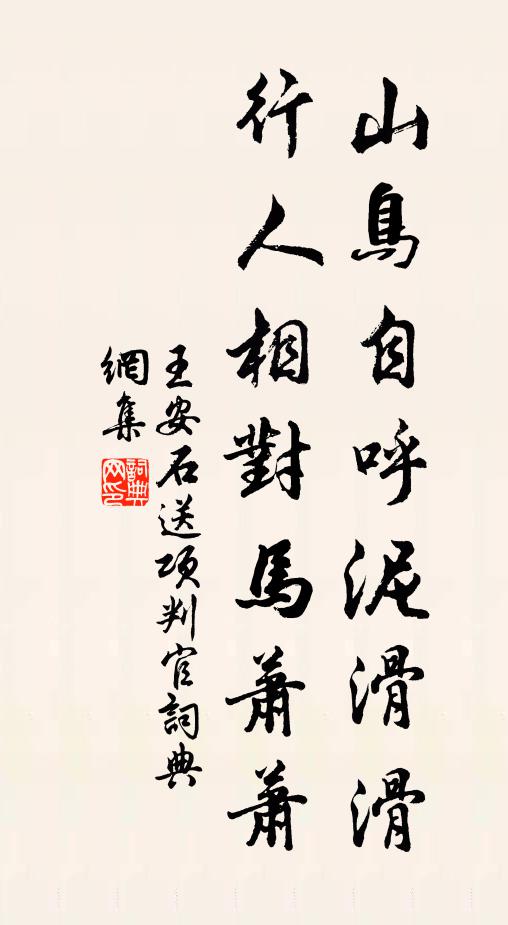 山鳥自呼泥滑滑
行人相對馬蕭蕭
王安石送项判官詞典
網集
詞典
网印